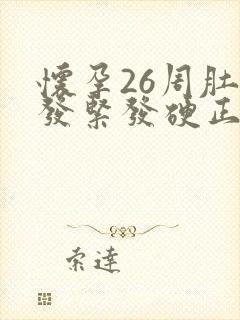 懷孕26周肚
發緊發硬正
索達